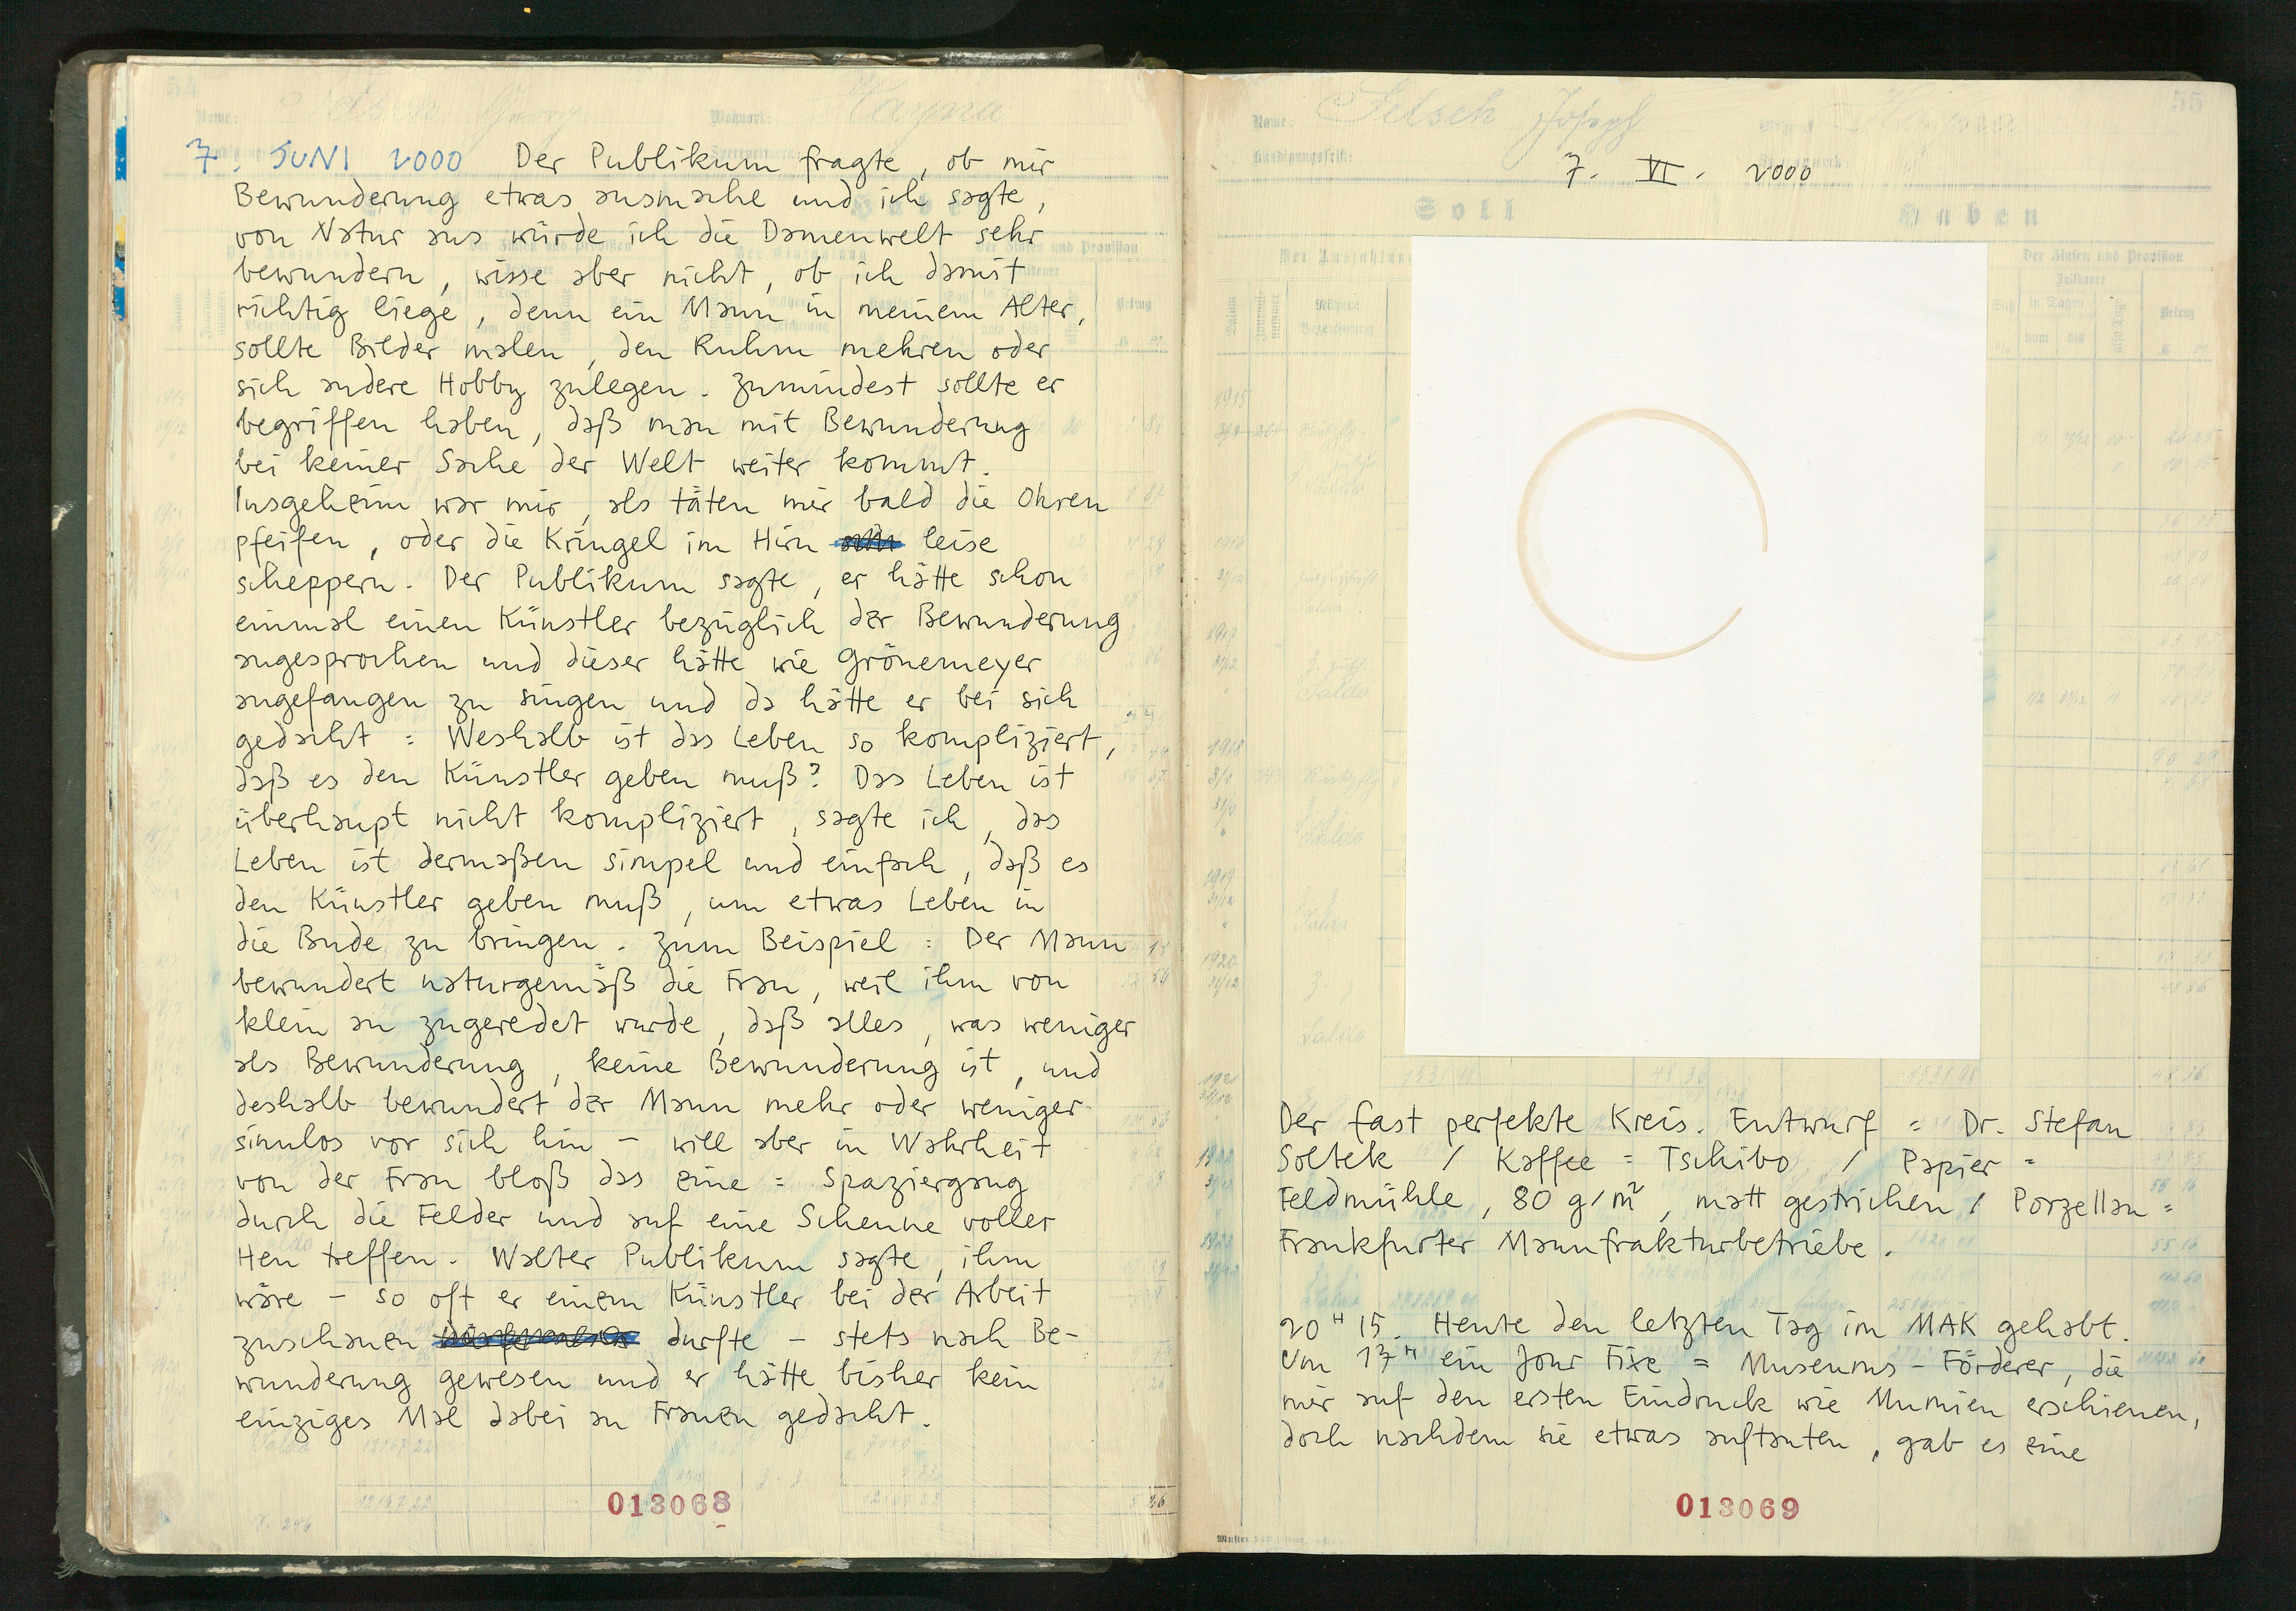 7. JUNI 2000 Der Publikum fragte, ob mir
Bewunderung etwas ausmache und ich sagte,
von Natur aus würde ich die Damenwelt sehr
bewundern, wisse aber nicht, ob ich damit
richtig liege, denn ein Mann in meinem Alter,
sollte Bilder malen, den Ruhm mehren oder
sich andere Hobby zulegen. Zumindest sollte er
begriffen haben, daß man mit Bewunderung
bei keiner Sache der Welt weiter kommt.
Insgeheim war mir, als täten mir bald die Ohren
pfeifen, oder die Kringel im Hirn leise
scheppern. Der Publikum sagte, er hätte schon
einmal einen Künstler bezüglich der Bewunderung
angesprochen und dieser hätte wie Grönemeyer
angefangen zu singen und da hätte er bei sich
gedacht: Weshalb ist das Leben so kompliziert,
daß es den Künstler geben muß? Das Leben ist
überhaupt nicht kompliziert, sagte ich, das
Leben ist dermaßen simpel und einfach, daß es
den Künstler geben muß, um etwas Leben in
die Bude zu bringen. Zum Beispiel: Der Mann
bewundert naturgemäß die Frau, weil ihm von
klein an zugeredet wurde, daß alles, was weniger
als Bewunderung, keine Bewunderung ist, und
deshalb bewundert der Mann mehr oder weniger
sinnlos vor sich hin – will aber in Wahrheit
von der Frau bloß das eine: Spaziergang
durch die Felder und auf eine Scheune voller
Heu treffen. Walter Publikum sagte, ihm
wäre – so oft er einem Künstler bei der Arbeit
zuschauen durfte – stets nach Be-
wunderung gewesen und er hätte bisher kein
einziges Mal dabei an Frauen gedacht.
013068
55
Name: Fetsch Joseph
Kündigungsfrist:
7. VI. 2000
Soll Haben
Der Zinsen und Provision
Der fast perfekte Kreis. Entwurf: Dr. Stefan
Soltek / Kaffee: Tschibo / Papier:
Feldmühle, 80 g/m², matt gestrichen / Porzellan:
Frankfurter Mannfrakturbetriebe.
20 H 15. Heute den letzten Tag im MAK gehabt.
Um 17 H ein Jour Fixe: Museums-Förderer, die
mir auf den ersten Eindruck wie Mumien erschienen,
doch nachdem sie etwas auftauten, gab es eine
013069